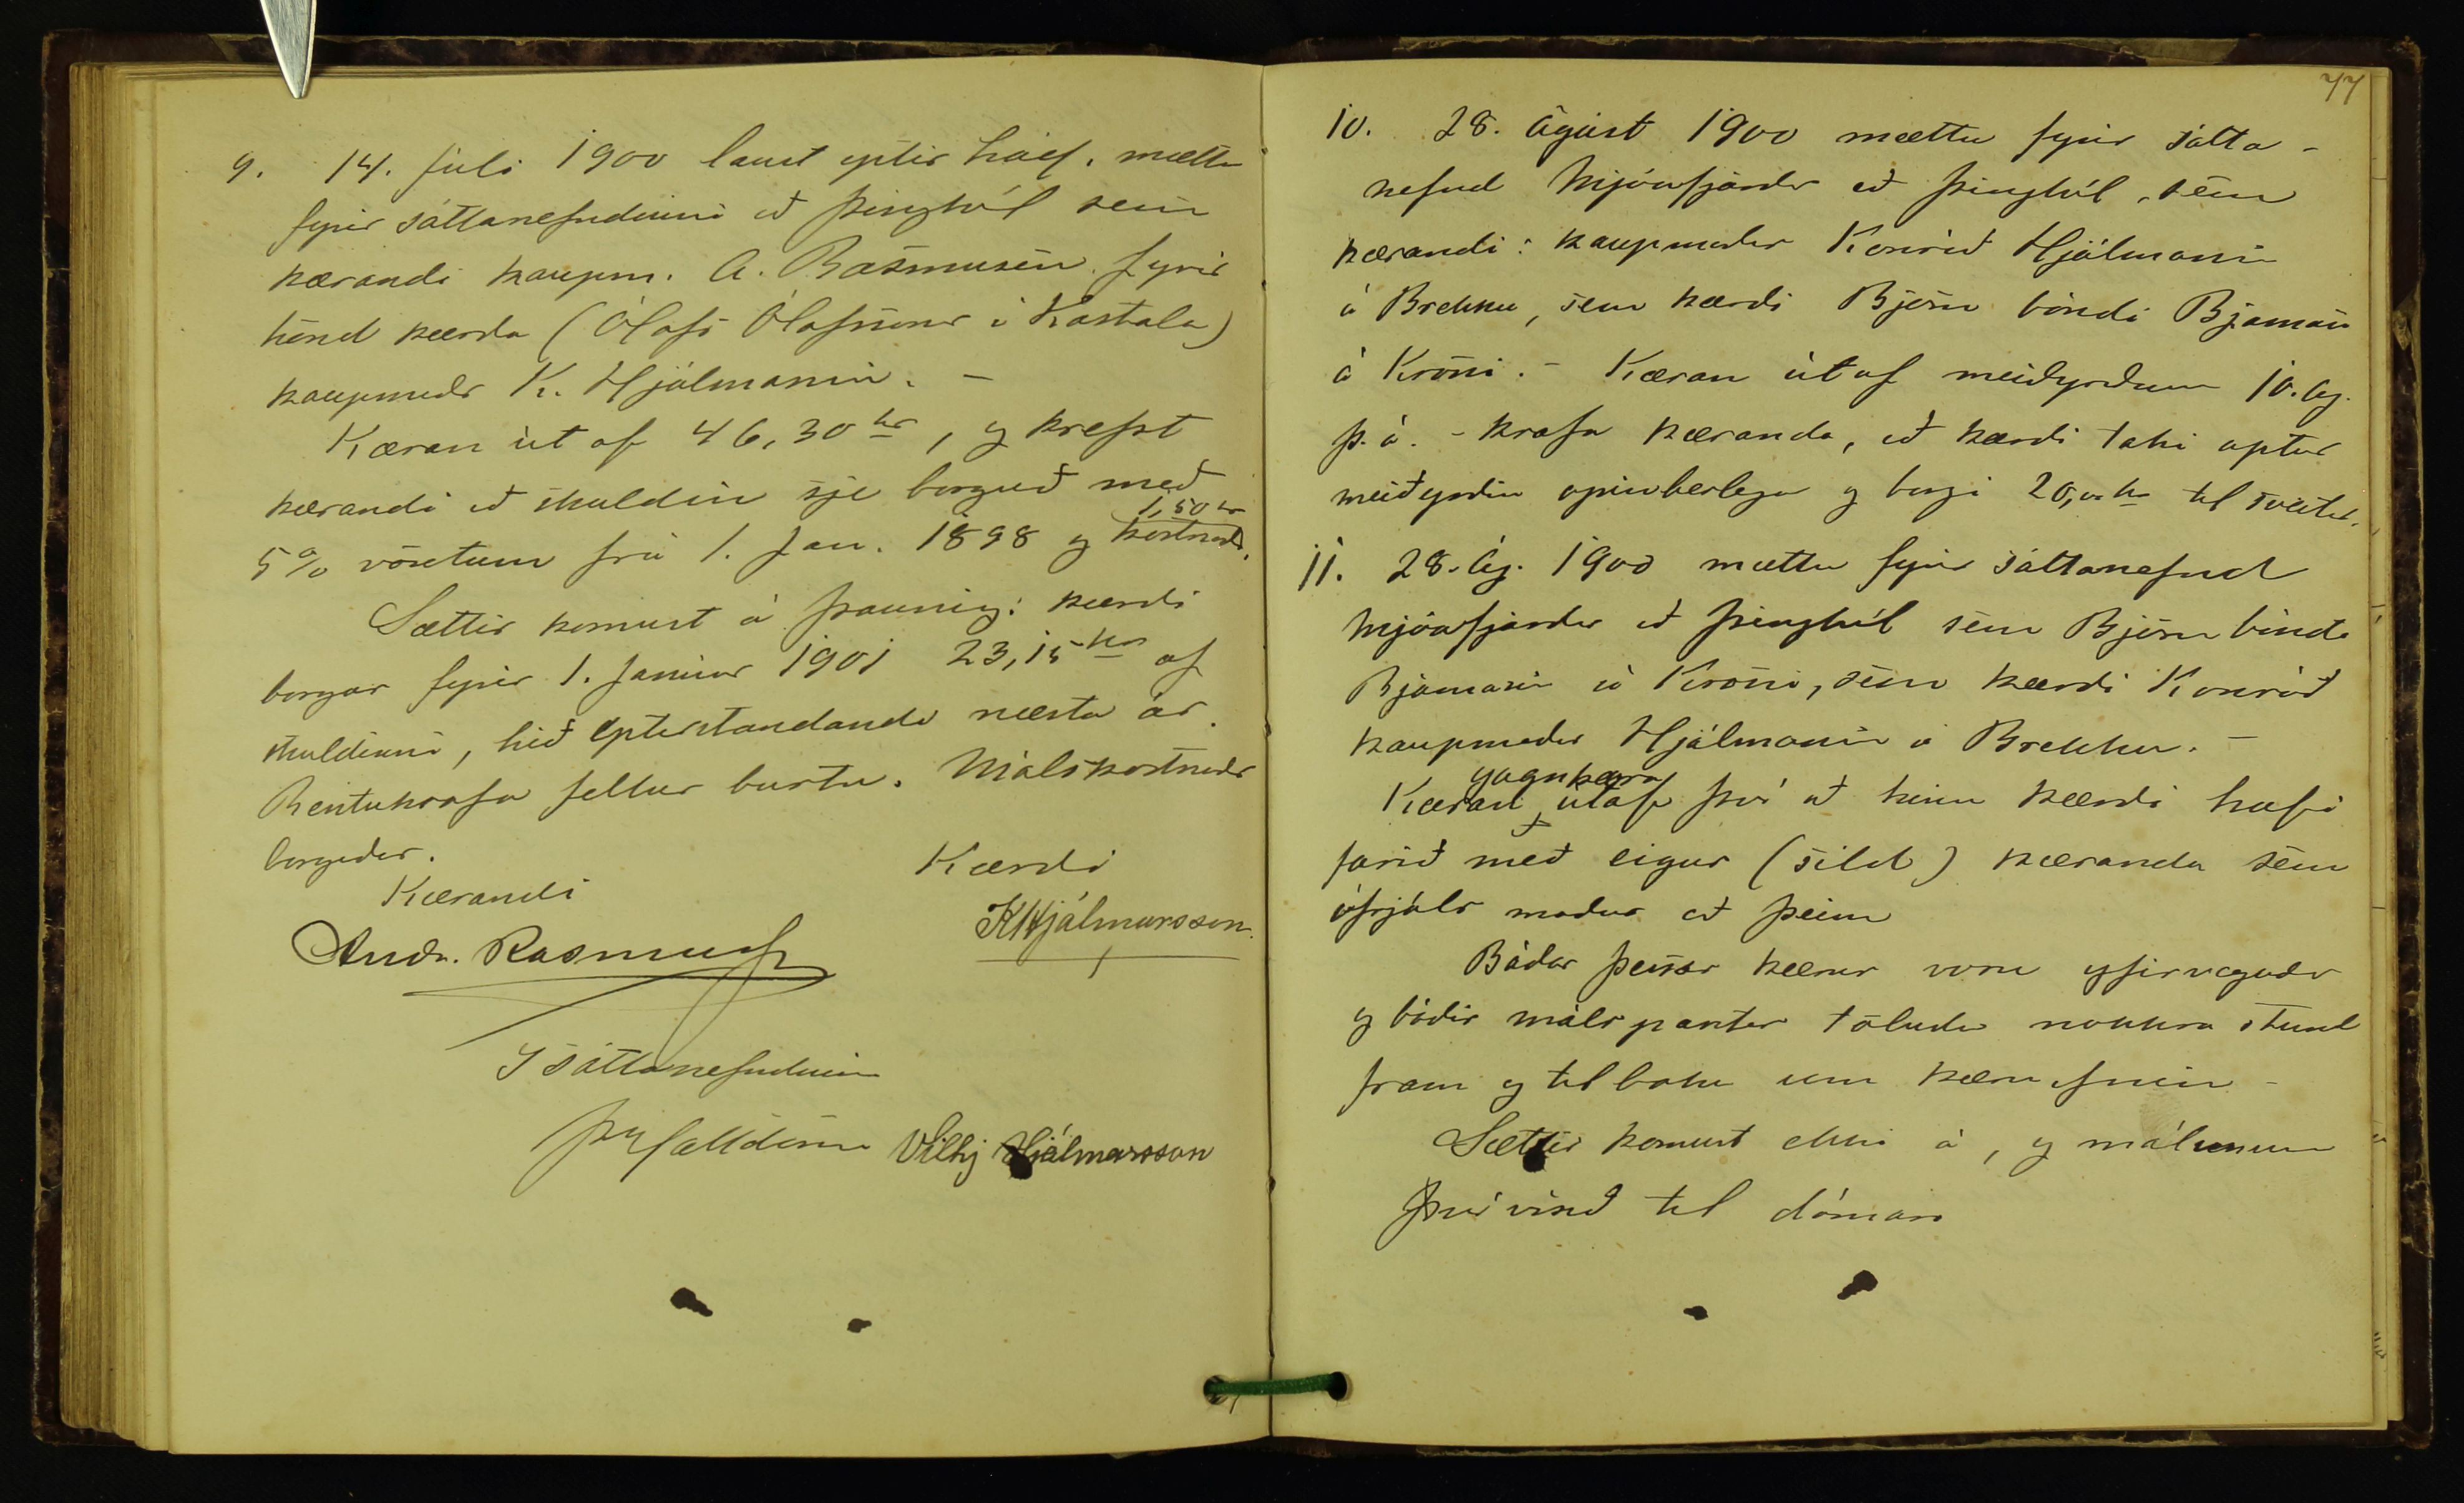 9. 14. Júli 1900 laust eptir háef. mættu
fyrir sáttanefndinni að Þinghól sem
kærandi kaupm. A. Rasmusen fyrir
hönd kærða (Ólafs Ólafssonar í Kastala)
kaupmaðr K. Hjálmarsson. -
Kæran út af 46,30 kr, og krefst
kærandi að skuldin sje borguð með
1,50 kr
5% vöxtum frá 1. Jan. 1898 og kostnað.
Sættir komust á þannig: kærði
borgar fyrir 1. Janúar 1901 23,15 kr af
skuldinni, hið eptirstandandi næsta ár.
Rentukrafa fellur burtu. Málskostnaðr
borgaðr.
Kærandi
Kærði
Andr. Rasmussen
KHjálmarsson.
Í sáttanefndinni
Vilhj Hjálmarsson
77
10. 28. Ágúst 1900 mættu fyrir sátta-
nefnd Mjóafjarðr að Þinghól, sem
kærandi: kaupmaðr Konráð Hjálmarsson
á Brekku, sem kærði Björn bóndi Bjarnason
á Króni. - Kæran út af meiðyrðum 10. Ág.
þ. á. - krafa kæranda, að kærði taki aptur
meiðyrðin opinberlega og borgi 20,00 kr til sveitar.
11. 28. Ág. 1900 mættu fyrir sáttanefnd
Mjóafjarðr að Þinghól sem Björn bóndi
Bjarnason á Króni, sem kærði Konráð
kaupmaðr Hjálmarsson á Brekku. -
gagnkæra
Kæran útaf því að hinn kærði hafi
farið með eigur (síld) kæranda sem
ófrjáls maður að þeim
Báðar þessar kærur voru yfirvegaðr
og báðir málspartar töluðu nokkra stund
fram og til baka um kæruefnin -
Sættir komust ekki á, og málunum
því vísað til dómara